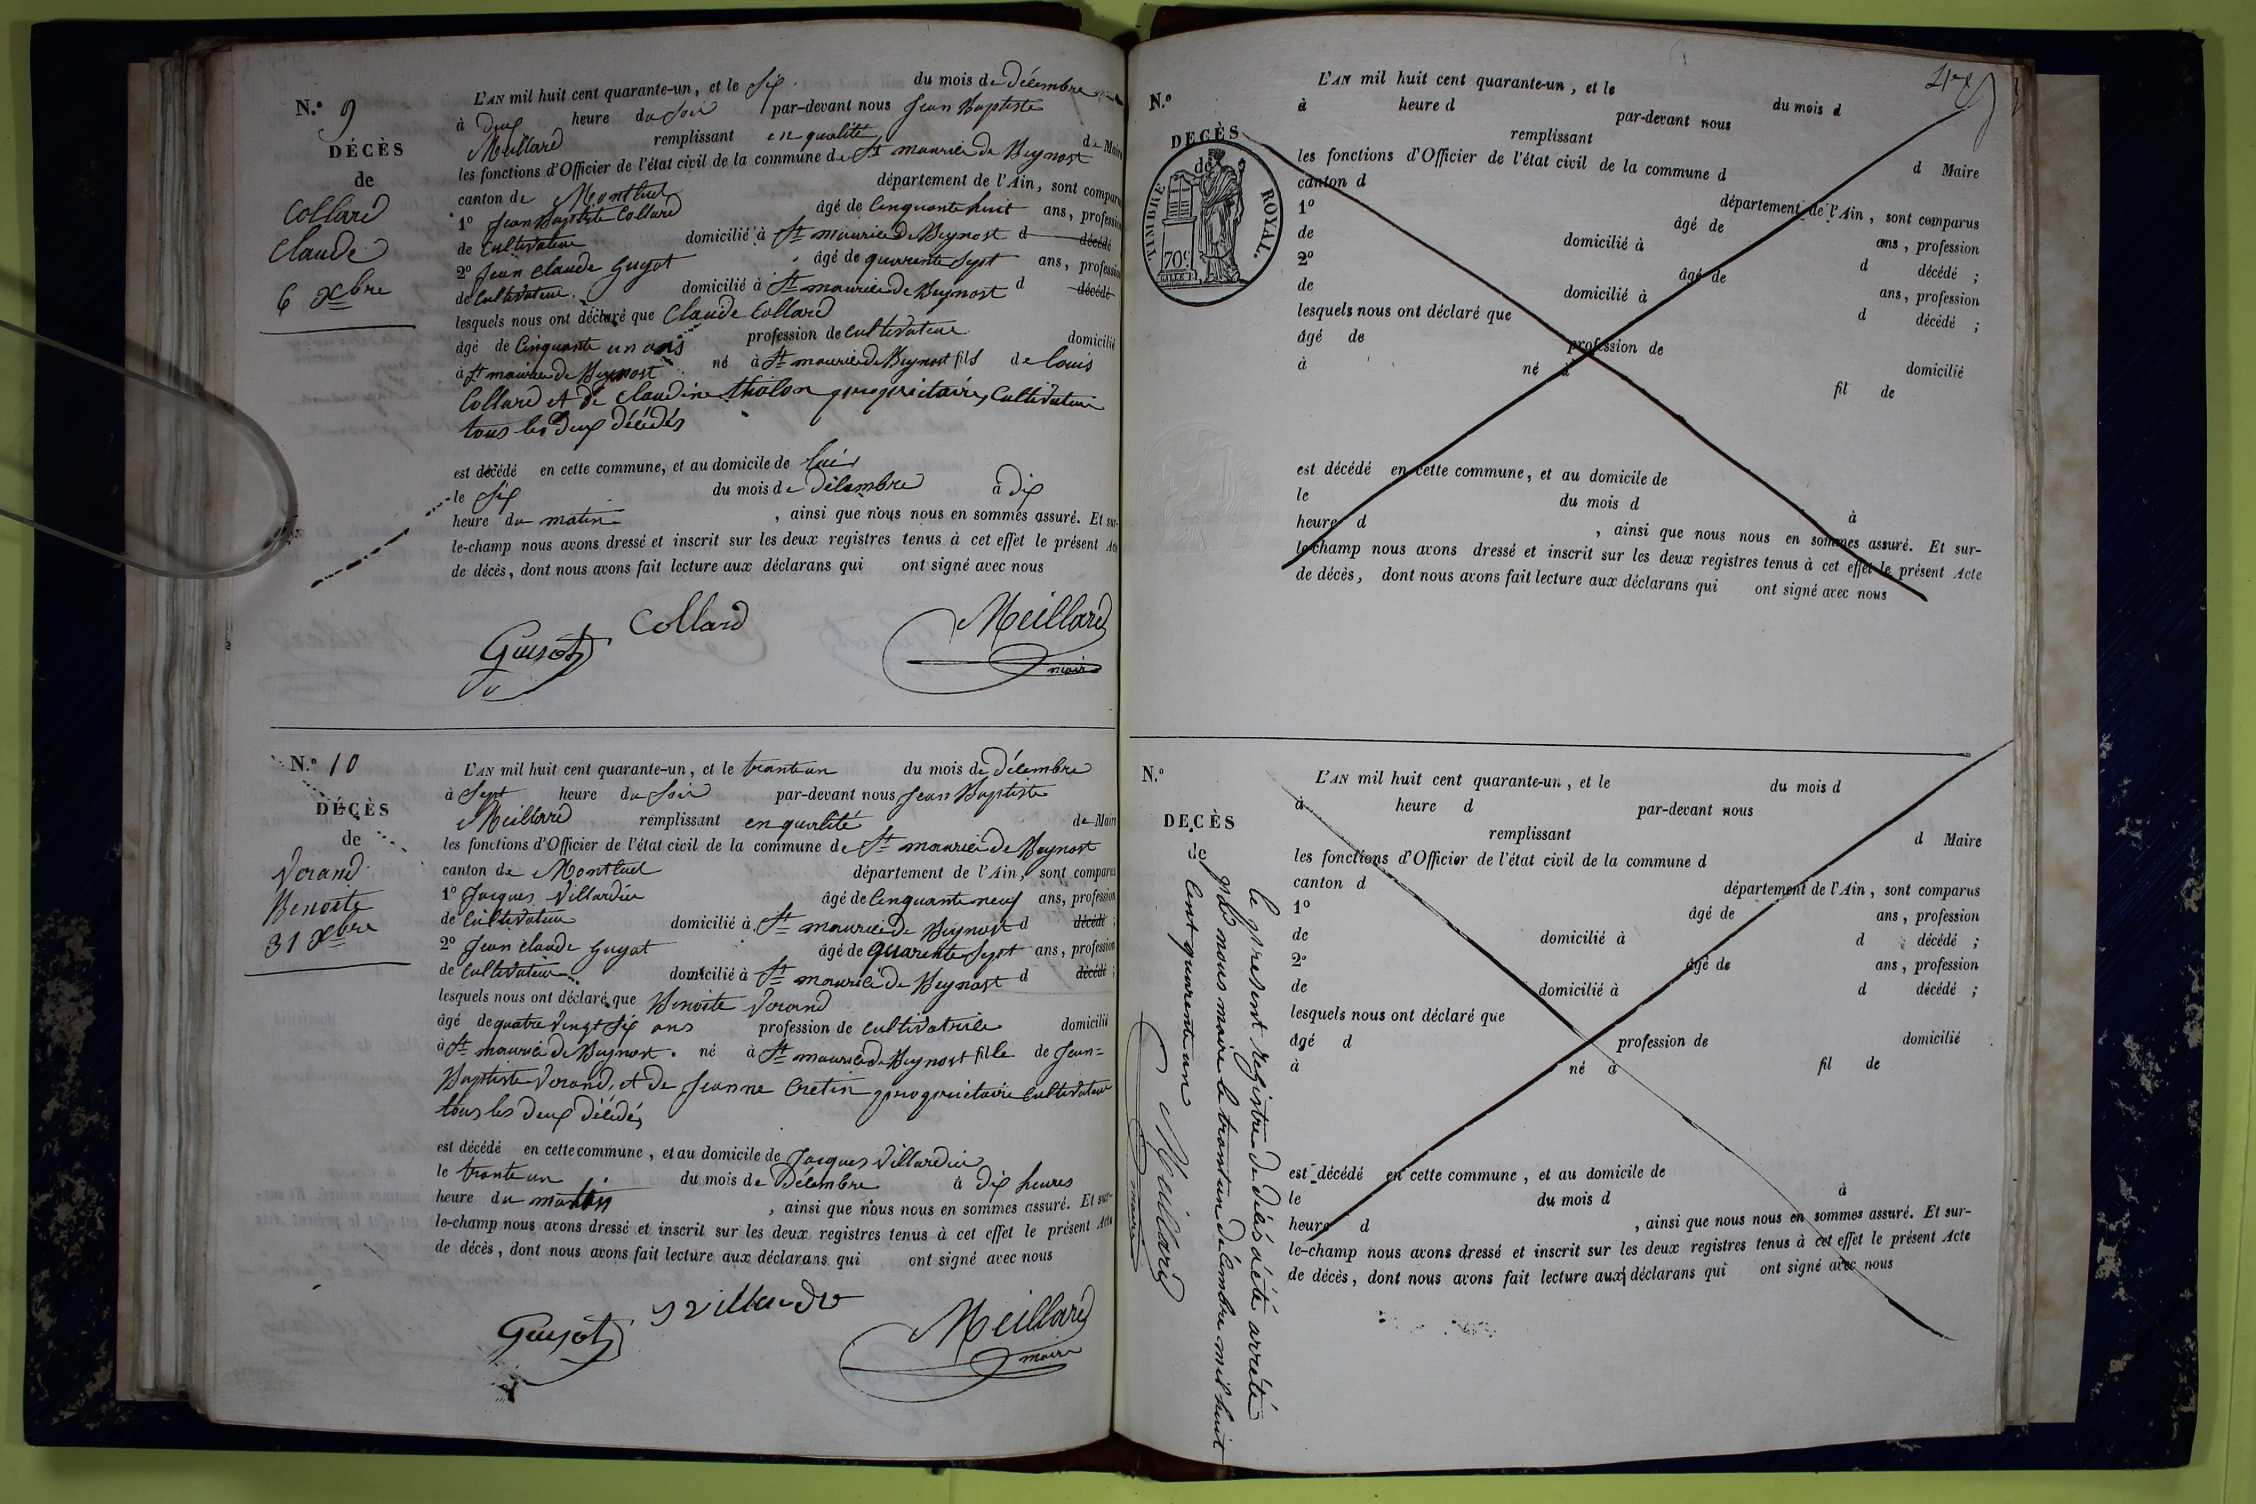 N.° 9
DÉCÈS
de
Collard
Claude
6 Xbre
L'AN mil huit cent quarante-un, et le Six du mois de Décembre
à deux heure du Soir par-devant nous Jean Baptiste
Meillard remplissant en qualité de Maire
les fonctions d'Officier de l'état civil de la commune de St maurice de Beynost
canton de Montluel département de l'Ain, sont comparus
1° Jean Baptiste Collard âgé de Cinquante huit ans, profession
de Cultivateur domicilié à St maurice de Beynost d décédé
2° Jean Claude Guyot âgé de quarente Sept ans, profession
de Cultivateur domicilié à St maurice de Beynost d décédé
lesquels nous ont déclaré que Claude Collard
âgé de Cinquante un ans profession de Cultivateur domicilié
à St maurice de Beynost né à St maurice de Beynost fils de Louis
Collard et de Claudine tholon proprietaires Cultivateur
tous les Deux décédés
est décédé en cette commune, et au domicile de lui
le Six du mois de Décembre à dix
heure du matin, ainsi que nous nous en sommes assuré. Et sur-
le-champ nous avons dressé et inscrit sur les deux registres tenus à cet effet le présent Acte
de décès, dont nous avons fait lecture aux déclarans qui ont signé avec nous
Collard
Guyot
Meillard
maire
N.° 10
DÉCÈS
de
Vorand
Benoite
31 Xbre
L'AN mil huit cent quarante-un, et le trante un du mois de Décembre
à Sept heure du Soir par-devant nous Jean Baptiste
Meillard remplissant en qualité de Maire
les fonctions d'Officier de l'état civil de la commune de St maurice de Beynost
canton de Montluel département de l'Ain, sont comparus
1° Jacques Villardier âgé de Cinquante neuf ans, profession
de Cultivateur domicilié à St maurice de Beynost d décédé ;
2° Jean Claude Guyot âgé de quarente Sept ans, profession
de Cultivateur domicilié à St maurice de Beynost d décédé ;
lesquels nous ont déclaré que Benoite Vorand
âgé de quatre vingt Six ans profession de Cultivatrice domicilié
à St maurice de Beynost. né à St maurice de Beynost fille de Jean=
Baptiste Vorand, et de Jeanne Cretin proprietaire Cultivateur
tous les deux décédés
est décédé en cette commune, et au domicile de Jacques Villardier
le trante un du mois de Décembre à dix heures
heure du matin, ainsi que nous nous en sommes assuré. Et sur-
le-champ nous avons dressé et inscrit sur les deux registres tenus à cet effet le présent Acte
de décès, dont nous avons fait lecture aux déclarans qui ont signé avec nous
Guyot
Meillard
maire
N.°
DECÈS
de
TIMBRE ROYAL.
70c
L'AN mil huit cent quarante-un, et le du mois d
à heure d par-devant nous
remplissant d Maire
les fonctions d'Officier de l'état civil de la commune d
canton d département de l'Ain, sont comparus
1° âgé de ans, profession
de domicilié à d décédé ;
2° âgé de ans, profession
de domicilié à d décédé ;
lesquels nous ont déclaré que
âgé de profession de domicilié
à né à fil de
est décédé en cette commune, et au domicile de
le du mois d à
heure d , ainsi que nous nous en sommes assuré. Et sur-
le-champ nous avons dressé et inscrit sur les deux registres tenus à cet effet le présent Acte
de décès, dont nous avons fait lecture aux déclarans qui ont signé avec nous
N.°
DECÈS
de
L'AN mil huit cent quarante-un, et le du mois d
à heure d par-devant nous
remplissant d Maire
les fonctions d'Officier de l'état civil de la commune d
canton d département de l'Ain, sont comparus
1° âgé de ans, profession
de domicilié à d décédé ;
2° âgé de ans, profession
de domicilié à d décédé ;
lesquels nous ont déclaré que
âgé d profession de domicilié
à né à fil de
est décédé en cette commune, et au domicile de
le du mois d à
heure d , ainsi que nous nous en sommes assuré. Et sur-
le-champ nous avons dressé et inscrit sur les deux registres tenus à cet effet le présent Acte
de décès, dont nous avons fait lecture aux déclarans qui ont signé avec nous
le present registre de décés a été arrété
par nous maire le trante un décembre mil huit
Cent quarente un
Meillard
maire